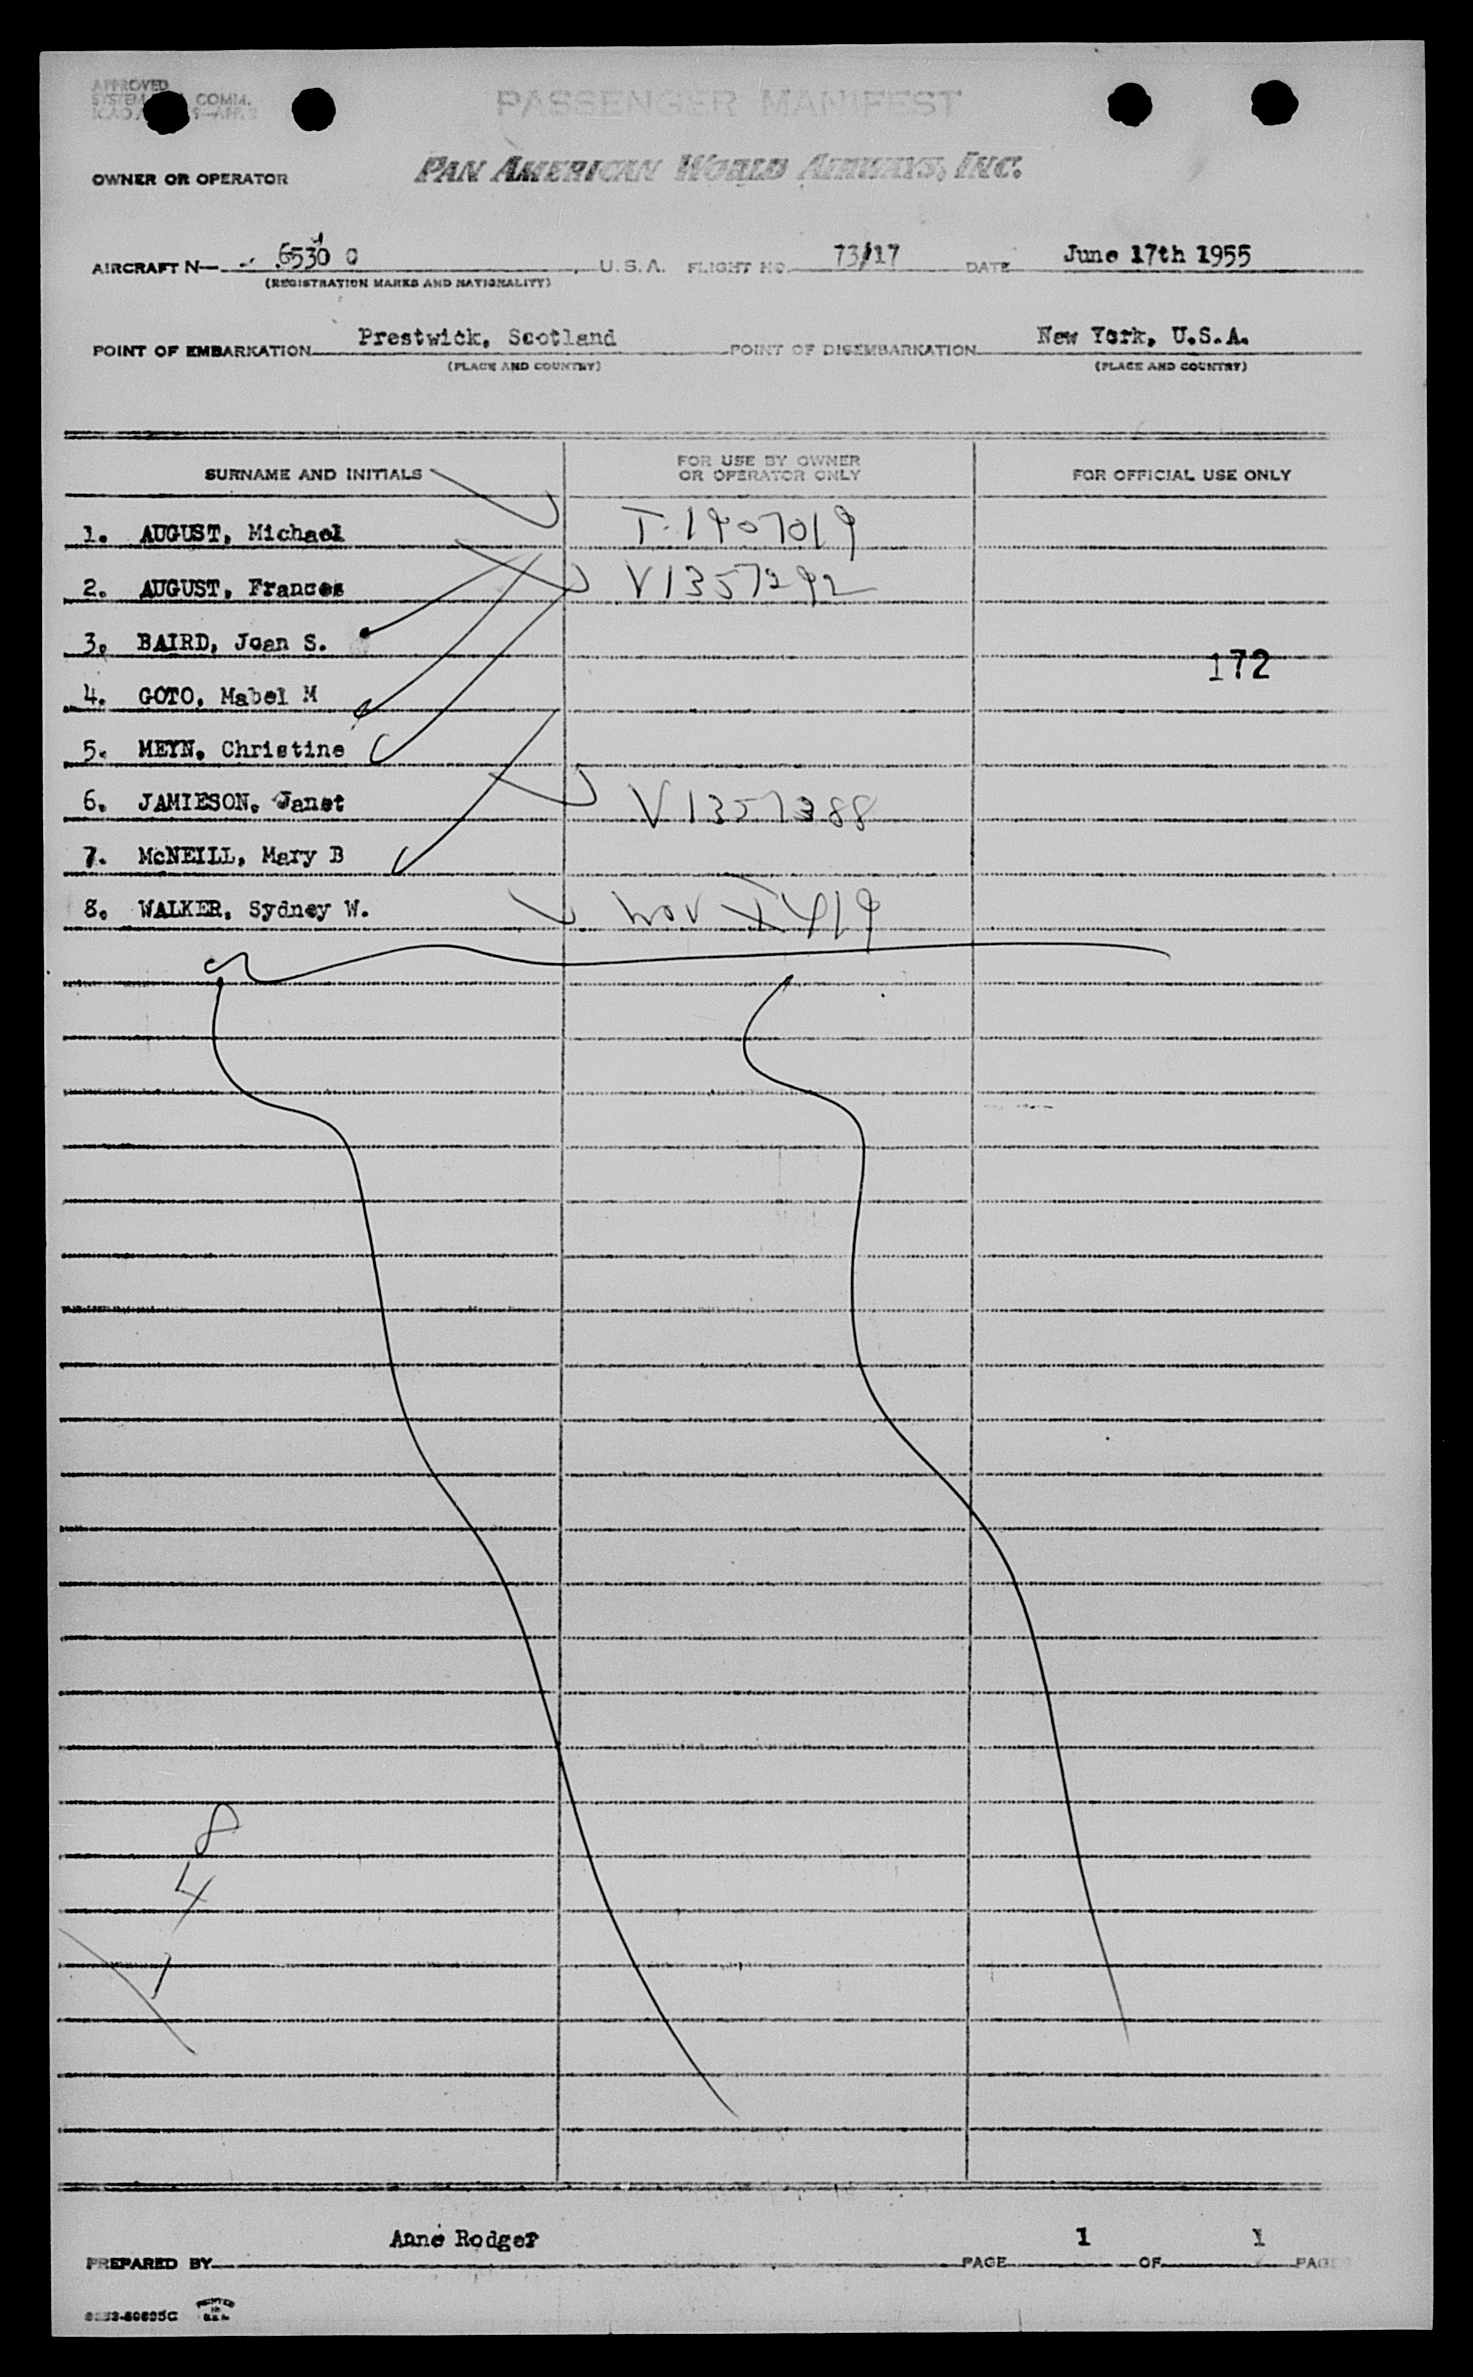 APPROVED
SYSTEM COMM.
PASSENGER MANIFEST
OWNER OR OPERATOR PAN AMERICAN WORLD AIRWAYS, INC.
AIRCRAFT N— 6530 C U.S.A. FLIGHT NO. 73/17 DATE June 17th 1955
(REGISTRATION MARKS AND NATIONALITY)
POINT OF EMBARKATION Prestwick, Scotland POINT OF DISEMBARKATION New York, U.S.A.
(PLACE AND COUNTRY) (PLACE AND COUNTRY)
SURNAME AND INITIALS FOR USE BY OWNER OR OPERATOR ONLY FOR OFFICIAL USE ONLY
1. AUGUST, Michael T-1907019
2. AUGUST, Frances V1357292
3. BAIRD, Joan S.
172
4. GOTO, Mabel M
5. MEYN, Christine
6. JAMIESON, Janet V1357388
7. McNEILL, Mary B
8. WALKER, Sydney W.
8
4
1
PREPARED BY Anne Rodger PAGE 1 OF 1 PAGES
PRINTED IN U.S.A.